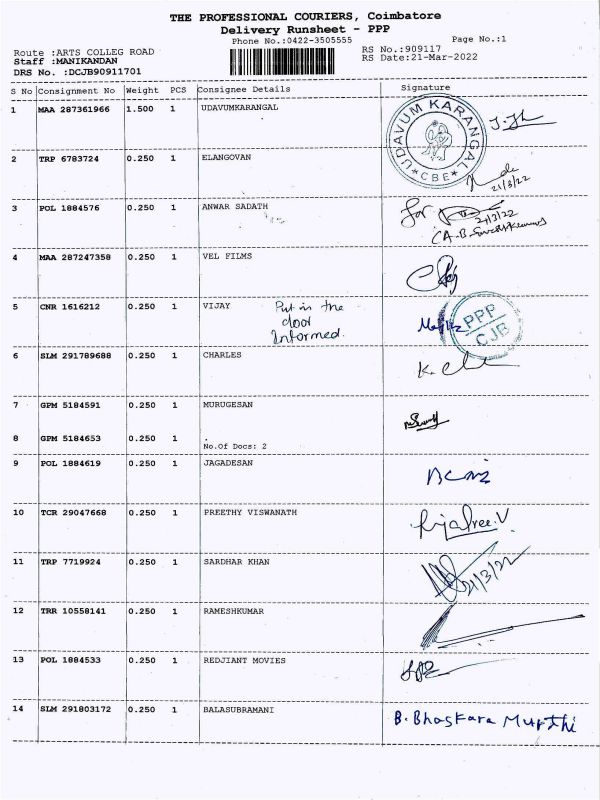 THE PROFESSIONAL COURIERS, Coimbatore
Delivery Runsheet - PPP
Phone No.:0422-3505555
Page No.:1
Route :ARTS COLLEG ROAD
RS No.:909117
Staff :MANIKANDAN
RS Date:21-Mar-2022
DRS No. :DCJB90911701
S No Consignment No Weight PCS Consignee Details Signature
1 MAA 287361966 1.500 1 UDAVUMKARANGAL
UDAVUM KARANGAL
* CBE *
2 TRP 6783724 0.250 1 ELANGOVAN
21/3/22
3 POL 1884576 0.250 1 ANWAR SADATH
for
21/3/22
4 MAA 287247358 0.250 1 VEL FILMS
5 CNR 1616212 0.250 1 VIJAY
Put in the
door
Informed.
PPP
CJB
6 SLM 291789688 0.250 1 CHARLES
7 GPM 5184591 0.250 1 MURUGESAN
8 GPM 5184653 0.250 1
No.Of Docs: 2
9 POL 1884619 0.250 1 JAGADESAN
10 TCR 29047668 0.250 1 PREETHY VISWANATH
11 TRP 7719924 0.250 1 SARDHAR KHAN
21/3/22
12 TRR 10558141 0.250 1 RAMESHKUMAR
13 POL 1884533 0.250 1 REDJIANT MOVIES
14 SLM 291803172 0.250 1 BALASUBRAMANI
B. Bhaskara Murthi